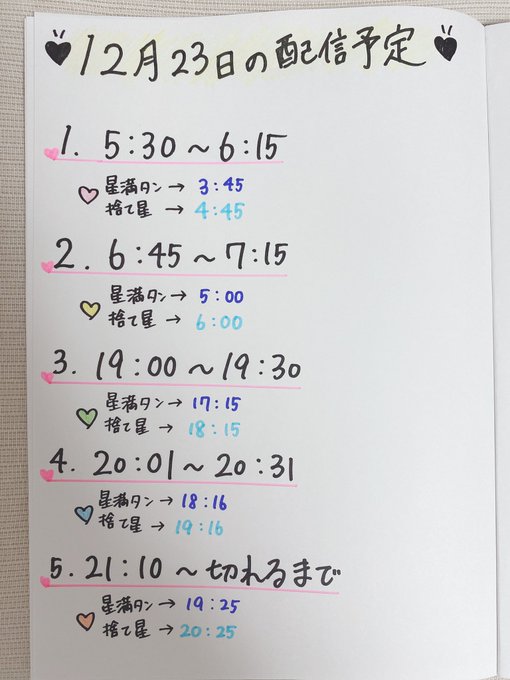 12月23日の配信予定
1. 5:30～6:15
星満タン→ 3:45
捨て星 → 4:45
2. 6:45～7:15
星満タン→ 5:00
捨て星 → 6:00
3. 19:00～19:30
星満タン→ 17:15
捨て星 → 18:15
4. 20:01～20:31
星満タン→ 18:16
捨て星 → 19:16
5. 21:10～切れるまで
星満タン→ 19:25
捨て星 → 20:25